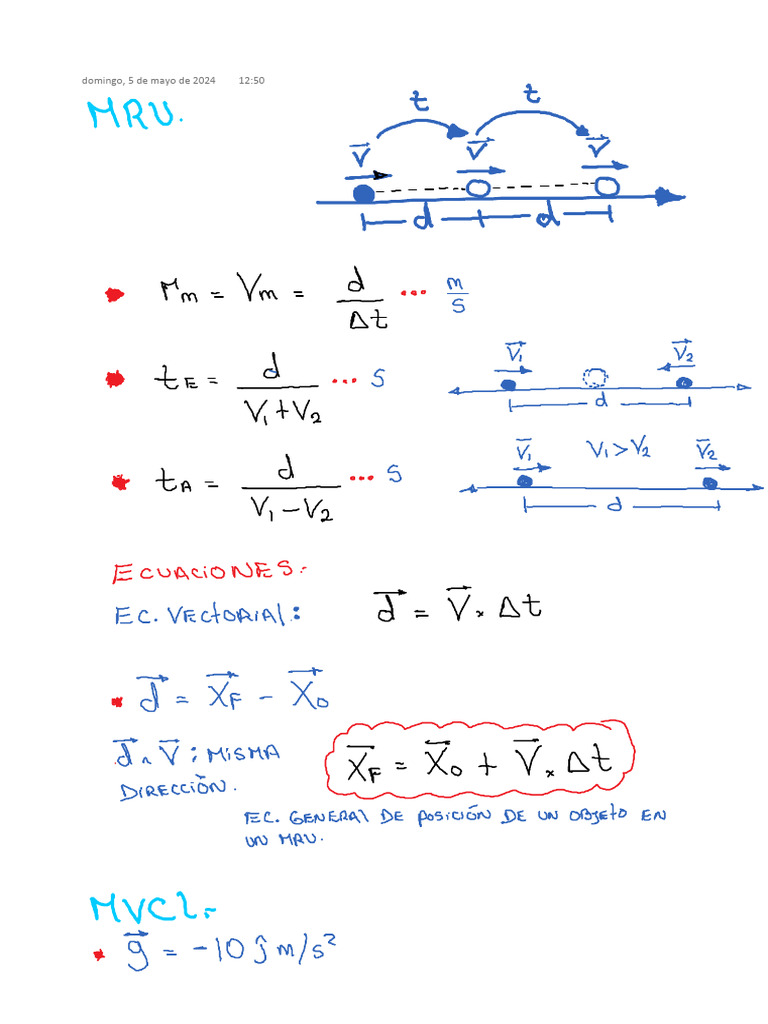 domingo, 5 de mayo de 2024 12:50
MRU.
t t
V⃗ V⃗ V⃗
d d
rm = Vm = d/Δt ... m/s
tE = d/(V1+V2) ... s
V⃗1 V⃗2
d
tA = d/(V1-V2) ... s
V⃗1 V1>V2 V⃗2
d
ECUACIONES.-
EC. VECTORIAL: d⃗ = V⃗ × Δt
d⃗ = X⃗F - X⃗0
d⃗ ∧ V⃗: MISMA
DIRECCIÓN.
X⃗F = X⃗0 + V⃗ × Δt
EC. GENERAL DE POSICIÓN DE UN OBJETO EN
UN MRU.
MVCL.-
g⃗ = -10 ĵ m/s²